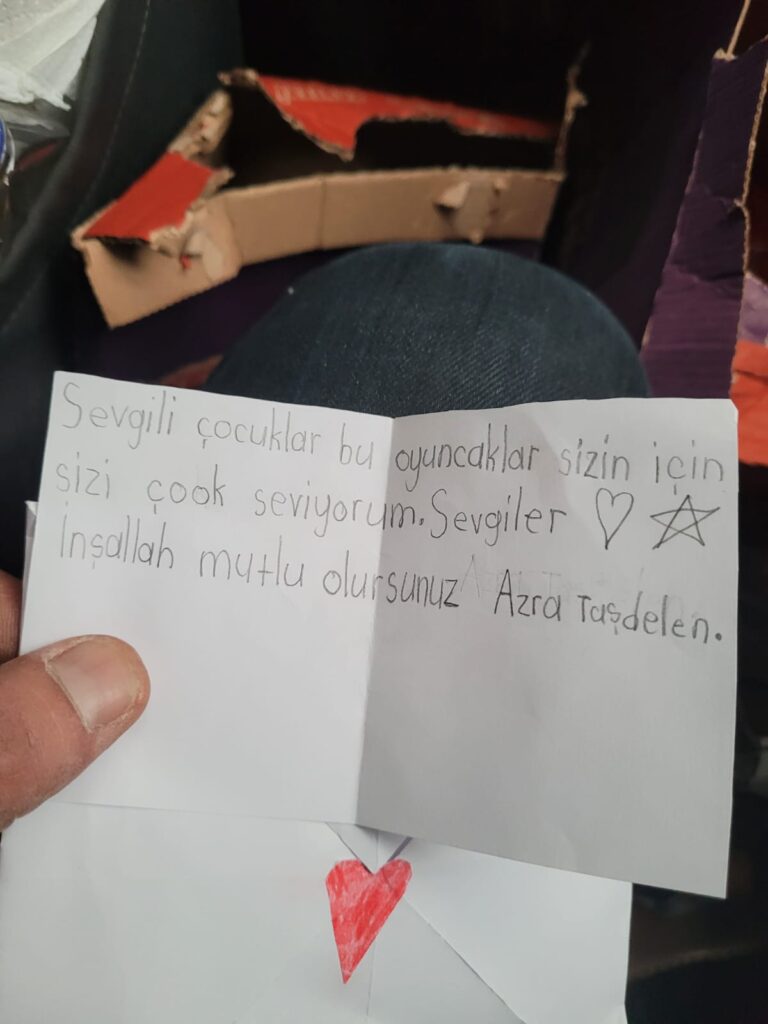 Sevgili çocuklar bu oyuncaklar sizin için
sizi çook seviyorum. Sevgiler ♡ ☆
İnşallah mutlu olursunuz Azra Taşdelen.